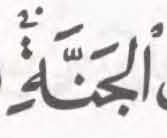 ٱلْجَنَّةِۚ